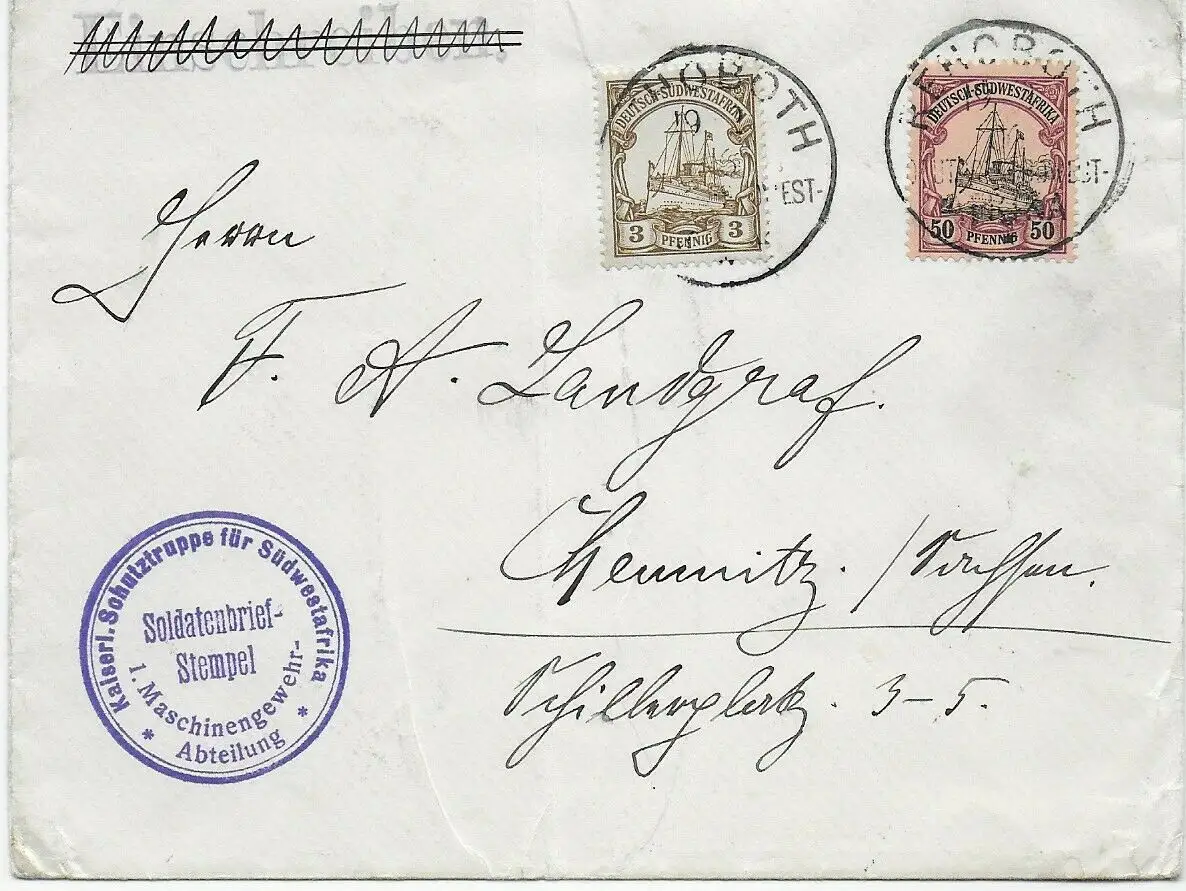 REHOBOTH
19
WEST-
DEUTSCH-SÜDWESTAFRIKA
3 PFENNIG 3
REHOBOTH
DEUTSCH-SÜDWESTAFRIKA
50 PFENNIG 50
Herrn
F. A. Landgraf.
Chemnitz. / Sachsen.
Schillerplatz. 3-5.
Kaiserl. Schutztruppe für Südwestafrika
Soldatenbrief-
Stempel
1. Maschinengewehr-
* Abteilung *